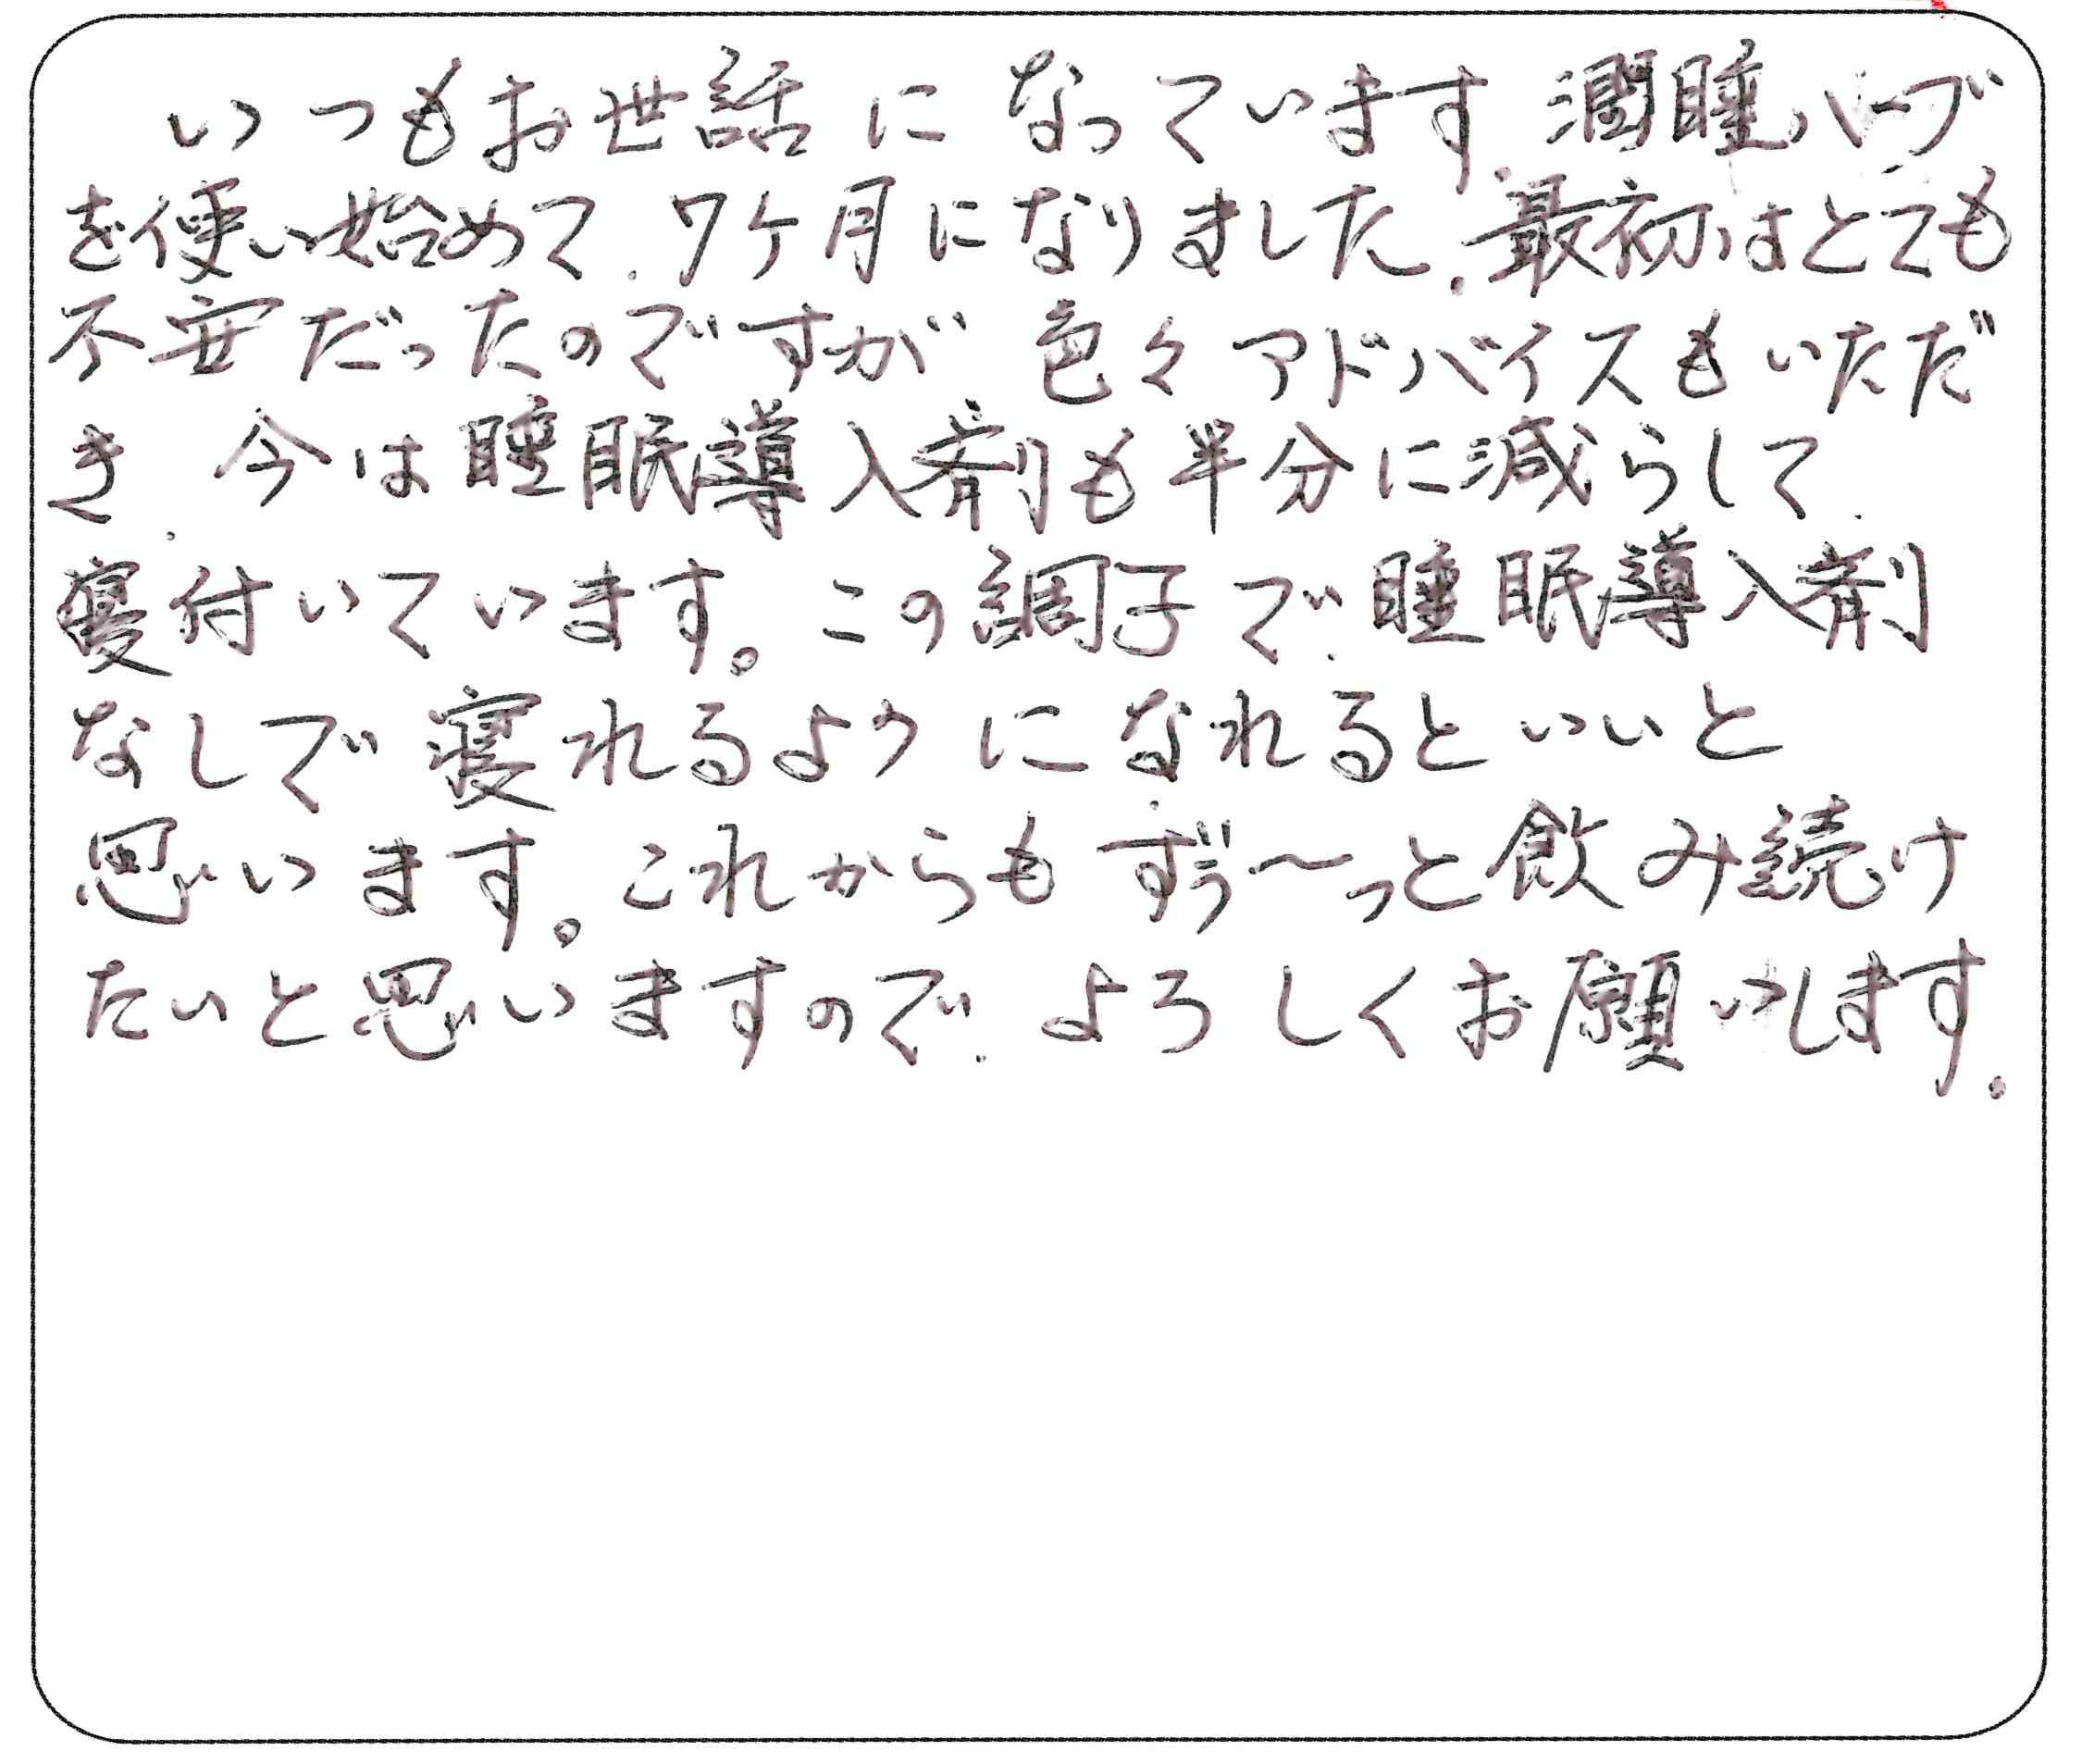 いつもお世話になっています.潤睡ハーブ
を使い始めて.7ヶ月になりました.最初はとても
不安だったのですが 色々アドバイスもいただ
き.今は睡眠導入剤も半分に減らして.
寝付いています。この調子で.睡眠導入剤
なしで寝れるようになれるといいと
思います。これからもずぅ〜っと飲み続け
たいと思いますので.よろしくお願いします.